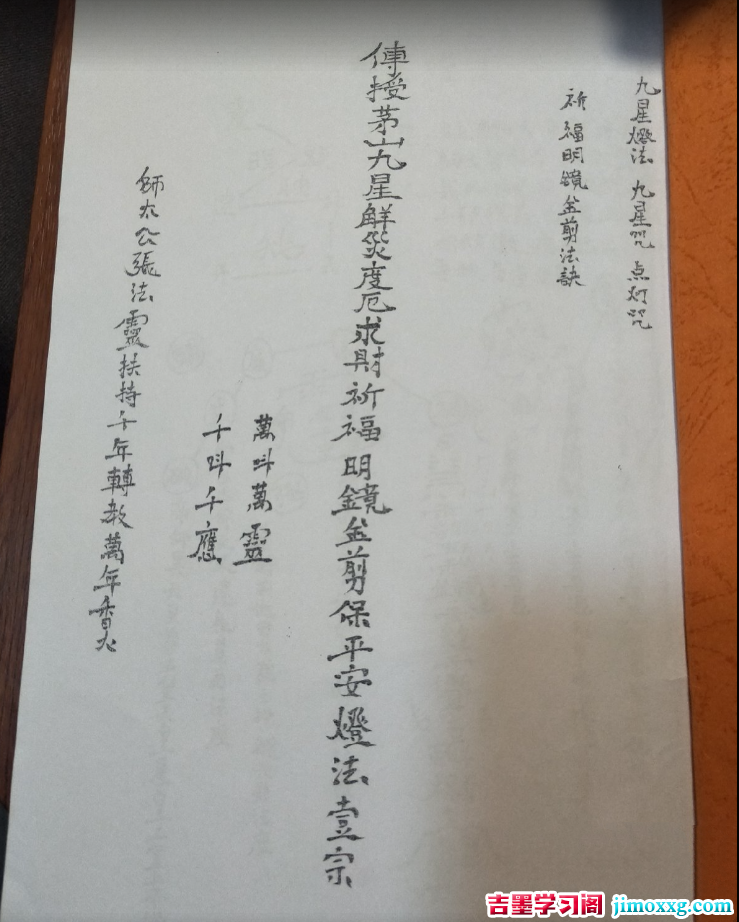 九星燈法 九星咒 点灯咒
祈福明鏡金剪法訣
傳授茅山九星解災度厄求財祈福明鏡金剪保平安燈法壹宗
萬叫萬靈
千叫千應
師太公張法靈扶持千年轉教萬年香火
吉墨学习阁 jimoxxg.com